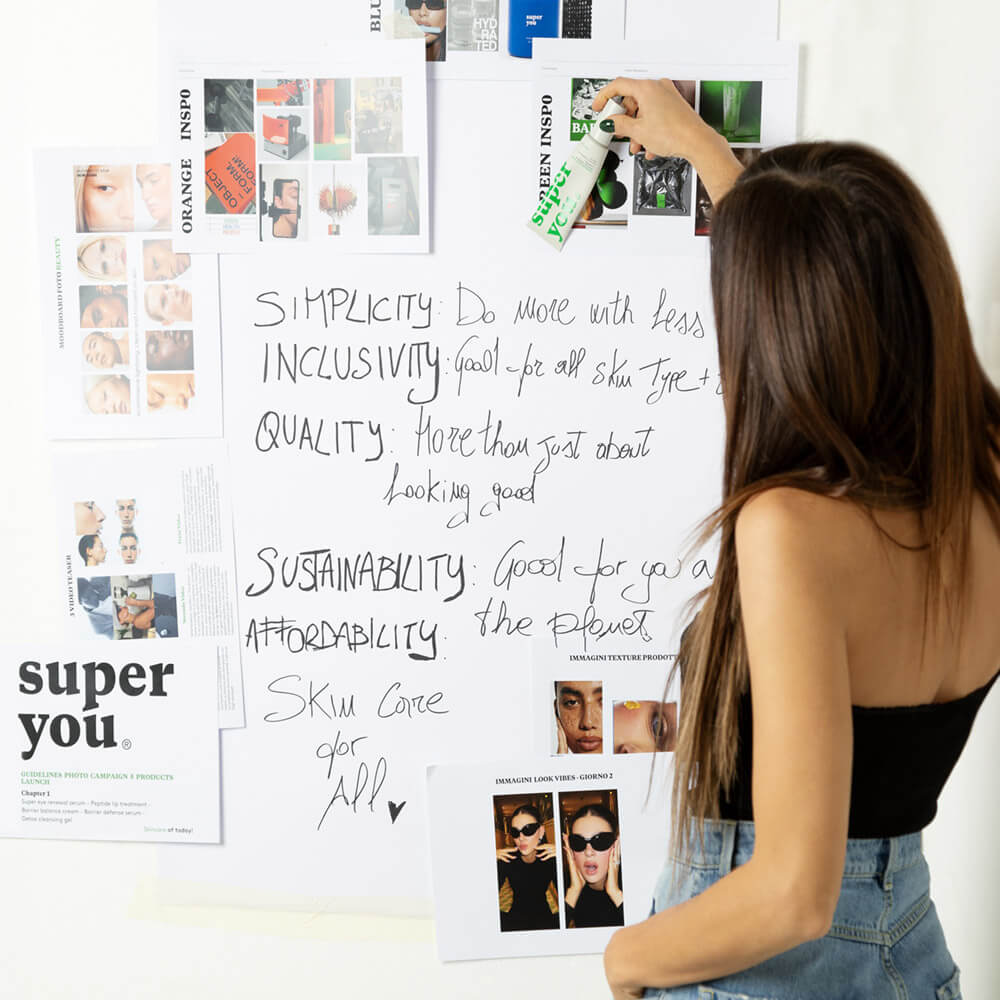 BLU
HYD
RATED
super
you
ORANGE INSPO
OBJECT.
FORM!
GREEN INSPO
BAR
super
you.
MOODBOARD FOTO BEAUTY
SIMPLICITY: Do more with less
INCLUSIVITY: Good for all skin Type +
QUALITY: More than just about
Looking good
SUSTAINABILITY: Good for you a
the planet.
AFFORDABILITY:
Skin Care
for
All
3 VIDEO TEASER
super
you®
GUIDELINES PHOTO CAMPAIGN 5 PRODUCTS
LAUNCH
Chapter 1
Super eye renewal serum - Peptide lip treatment -
Barrier balance cream - Barrier defense serum -
Detox cleansing gel
Skincare of today!
IMMAGINI TEXTURE PRODOTT
IMMAGINI LOOK VIBES - GIORNO 2